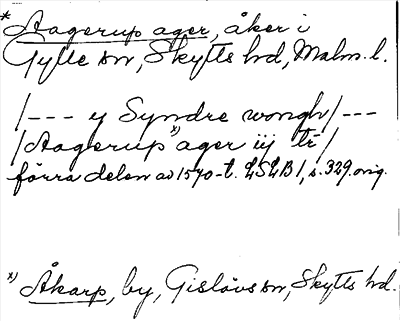 * Aagerup ager, åker i
Gylle sn, Skytts hd, Malm. l.
/--- y Syndre wongh/---
/Aagerup x) ager iij tr̄/
förra delen av 1570-t. LSLB1, s. 329. orig.
x) Åkarp, by, Gislövs sn, Skytts hd.